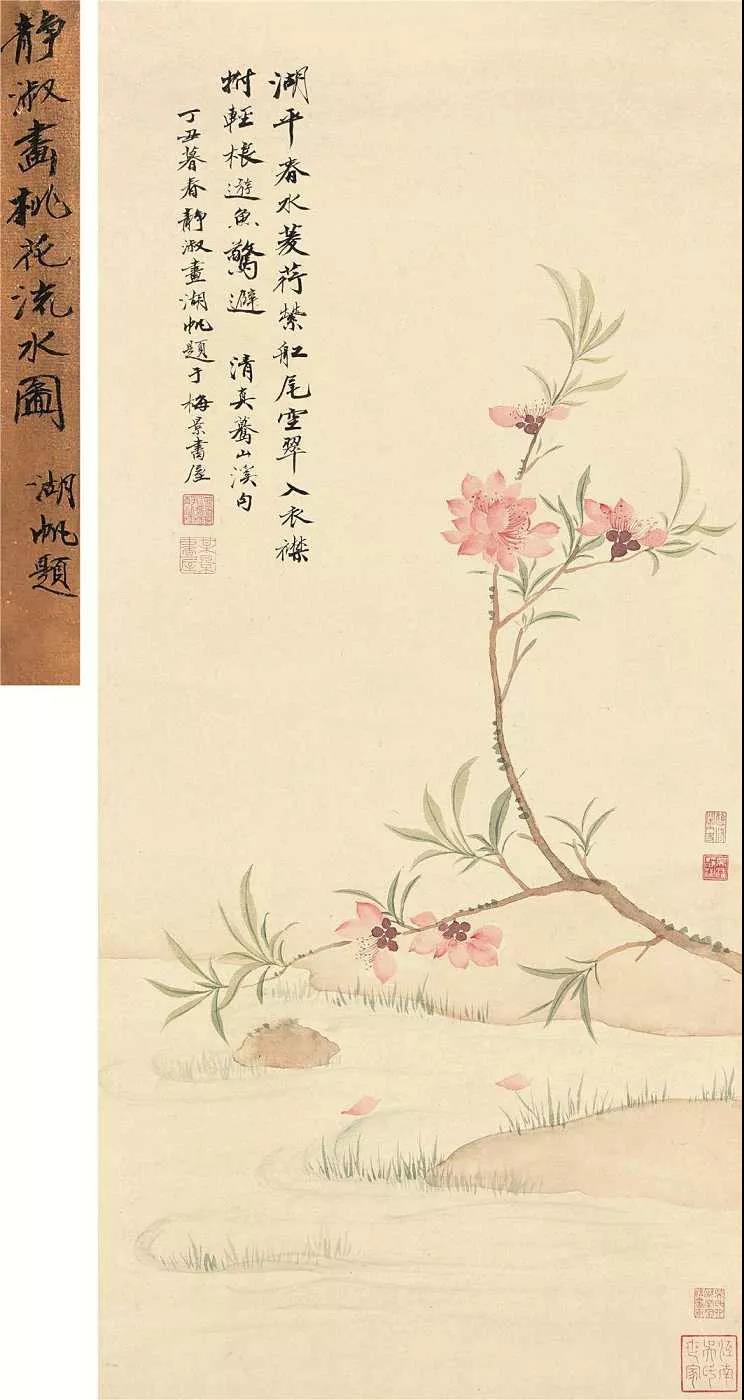 靜淑畫桃花流水圖
湖帆題
湖平春水菱荇縈舡尾空翠入衣襟
拊輕桹遊魚驚避 清真驀山溪句
丁丑暮春靜淑畫湖帆題于梅景書屋
某景書屋